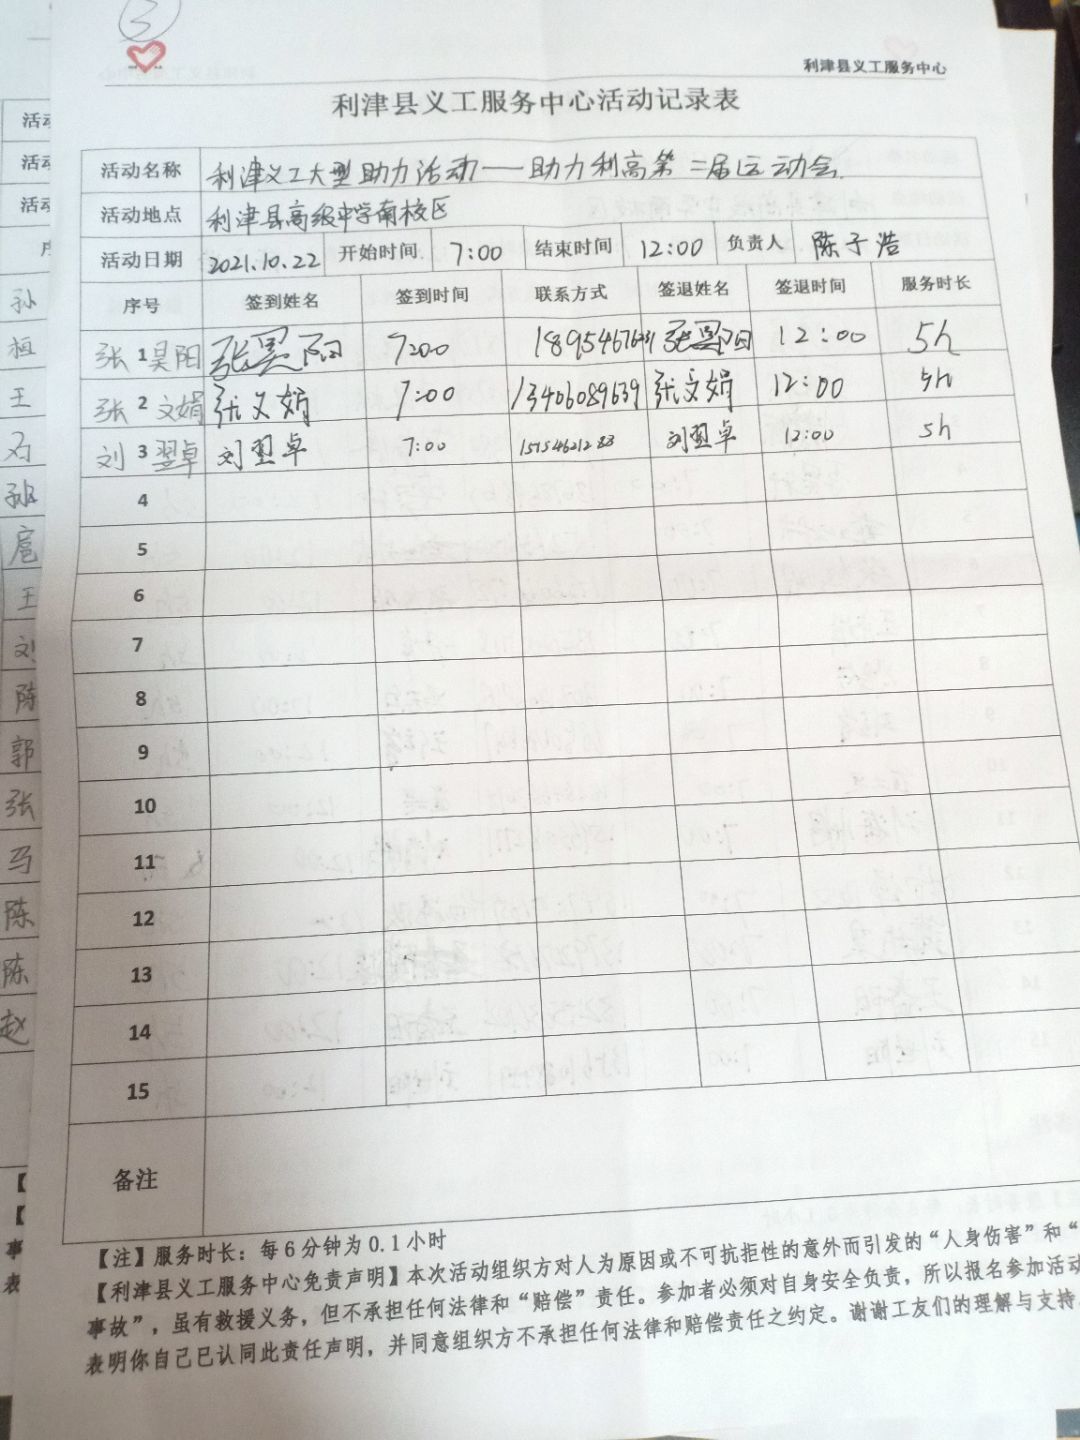 3
利津县义工服务中心
利津县义工服务中心活动记录表
活动名称 利津义工大型助力活动——助力利高第二届运动会.
活动地点 利津县高级中学南校区
活动日期 2021.10.22 开始时间 7:00 结束时间 12:00 负责人 陈子浩
序号 签到姓名 签到时间 联系方式 签退姓名 签退时间 服务时长
张 1 昊阳 张昊阳 7:00 张昊阳 12:00 5h
张 2 文娟 张文娟 7:00 13406089639 张文娟 12:00 5h
刘 3 翌卓 刘翌卓 7:00 刘翌卓 12:00 5h
4
5
6
7
8
9
10
11
12
13
14
15
备注
【注】服务时长：每6分钟为0.1小时
【利津县义工服务中心免责声明】本次活动组织方对人为原因或不可抗拒性的意外而引发的“人身伤害”和“
事故”，虽有救援义务，但不承担任何法律和“赔偿”责任。参加者必须对自身安全负责，所以报名参加活动
表明你自己已认同此责任声明，并同意组织方不承担任何法律和赔偿责任之约定。谢谢工友们的理解与支持
活动
活动
活动
孙
桓
王
石
孙
扈
王
刘
陈
郭
张
马
陈
陈
赵
【
【
事
表